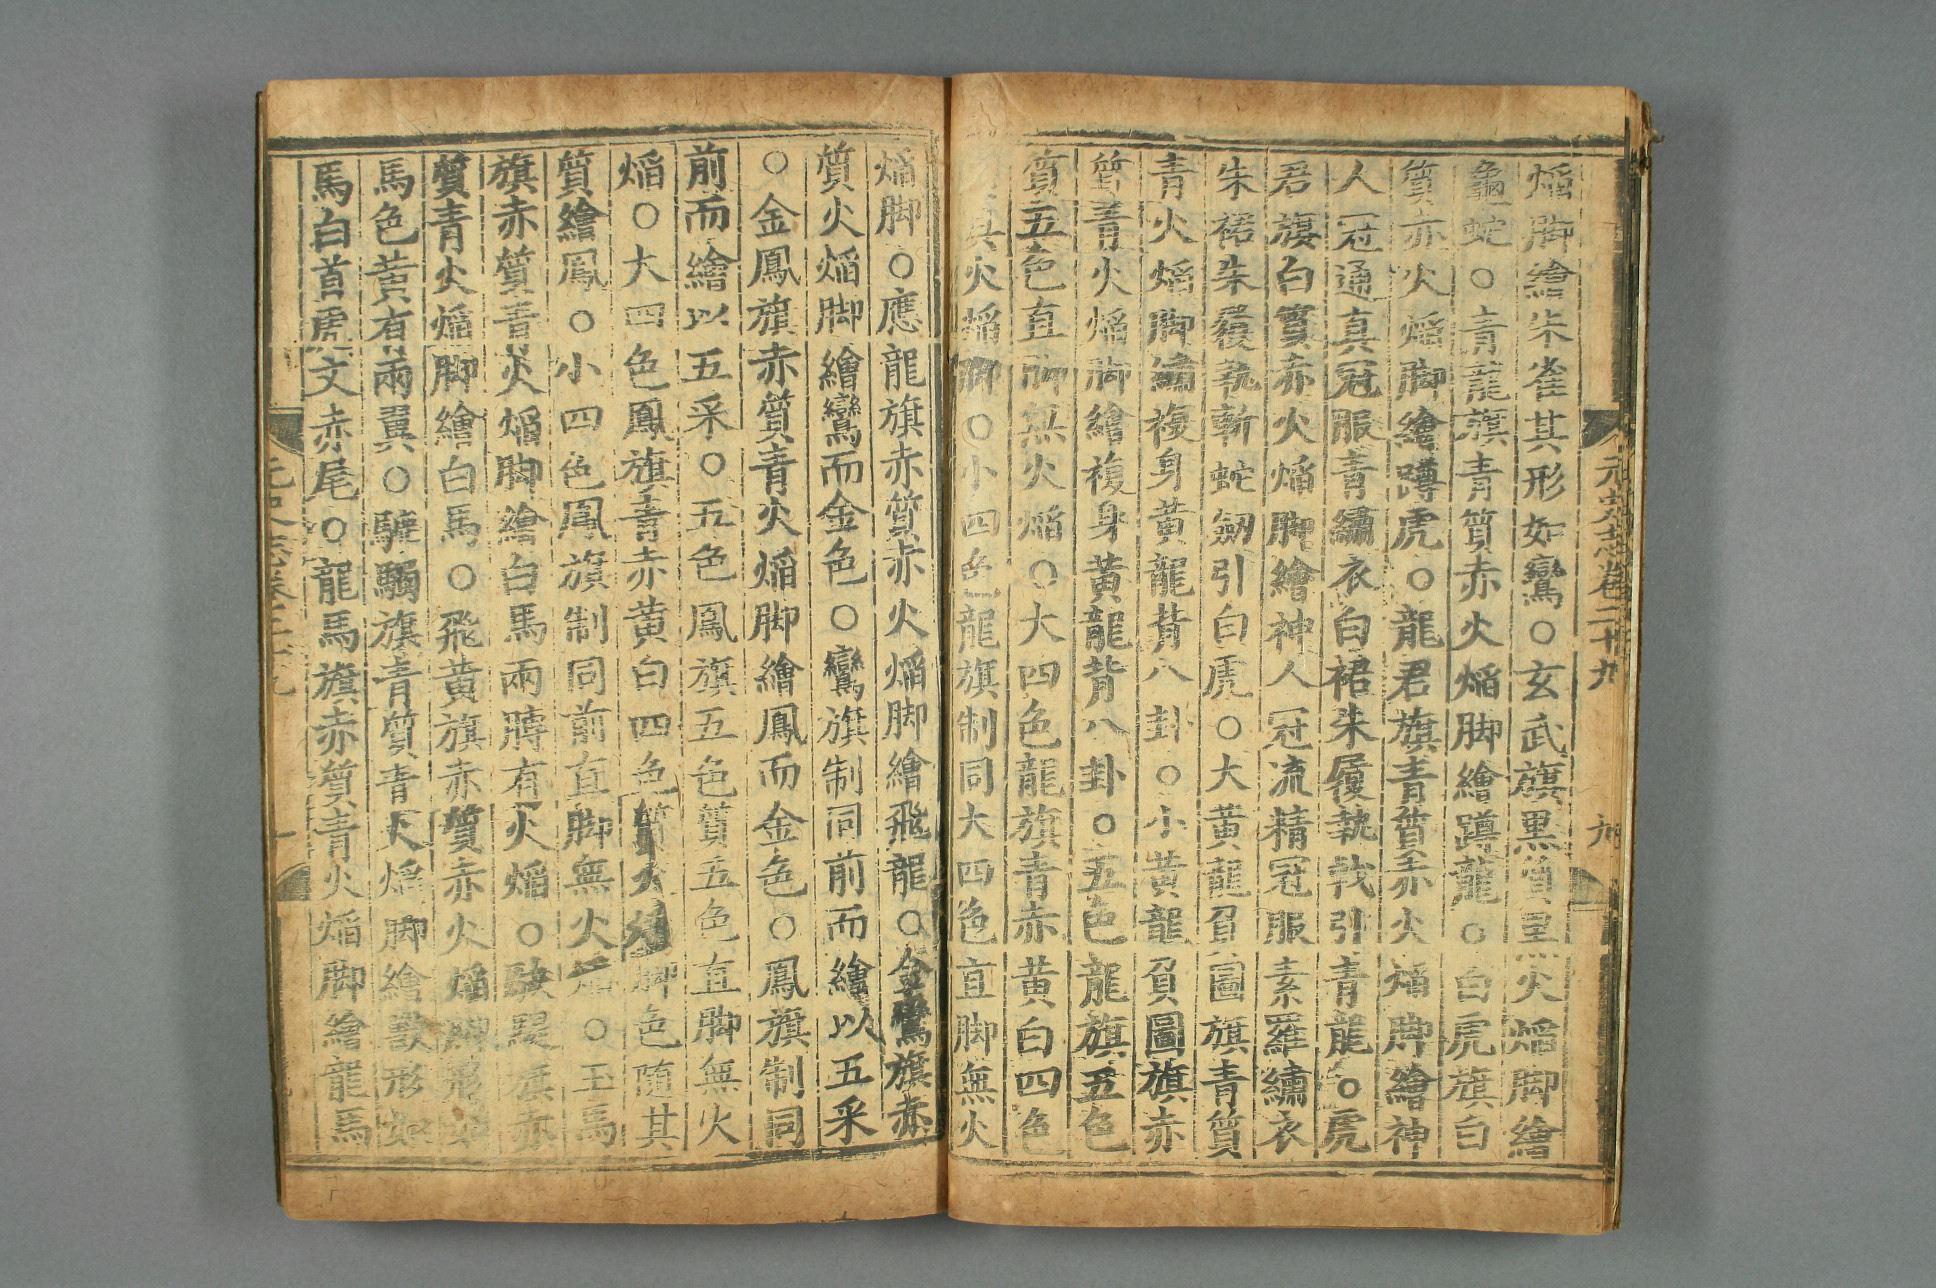 元史志卷二十九
九
焰脚繪朱雀其形如鸞○玄武旗黑質黑火焰脚繪
龜蛇○青龍旗青質赤火焰脚繪蹲龍○白虎旗白
質赤火焰脚繪蹲虎○龍君旗青質赤火焰脚繪神
人冠通真冠服青繡衣白裙朱履執戟引青龍○虎
君旗白質赤火焰脚繪神人冠流精冠服素羅繡衣
朱裙朱履執斬蛇劔引白虎○大黃龍負圖旗青質
青火焰脚繡複身黃龍背八卦○小黃龍負圖旗赤
質青火焰脚繪複身黃龍背八卦○五色龍旗五色
質五色直脚無火焰○大四色龍旗青赤黃白四色
其火焰脚○小四色龍旗制同大四色直脚無火
焰脚○應龍旗赤質赤火焰脚繪飛龍○金鸞旗赤
質火焰脚繪鸞而金色○鸞旗制同前而繪以五采
○金鳳旗赤質青火焰脚繪鳳而金色○鳳旗制同
前而繪以五采○五色鳳旗五色質五色直脚無火
焰○大四色鳳旗青赤黃白四色質火焰脚色隨其
質繪鳳○小四色鳳旗制同前直脚無火焰○玉馬
旗赤質青火焰脚繪白馬兩膊有火焰○駃騠旗赤
質青火焰脚繪白馬○飛黃旗赤質赤火焰脚形如
馬色黃有兩翼○騼騳旗青質青火焰脚繪獸形如
馬白首虎文赤尾○龍馬旗赤質青火焰脚繪龍馬
元史志卷二十九